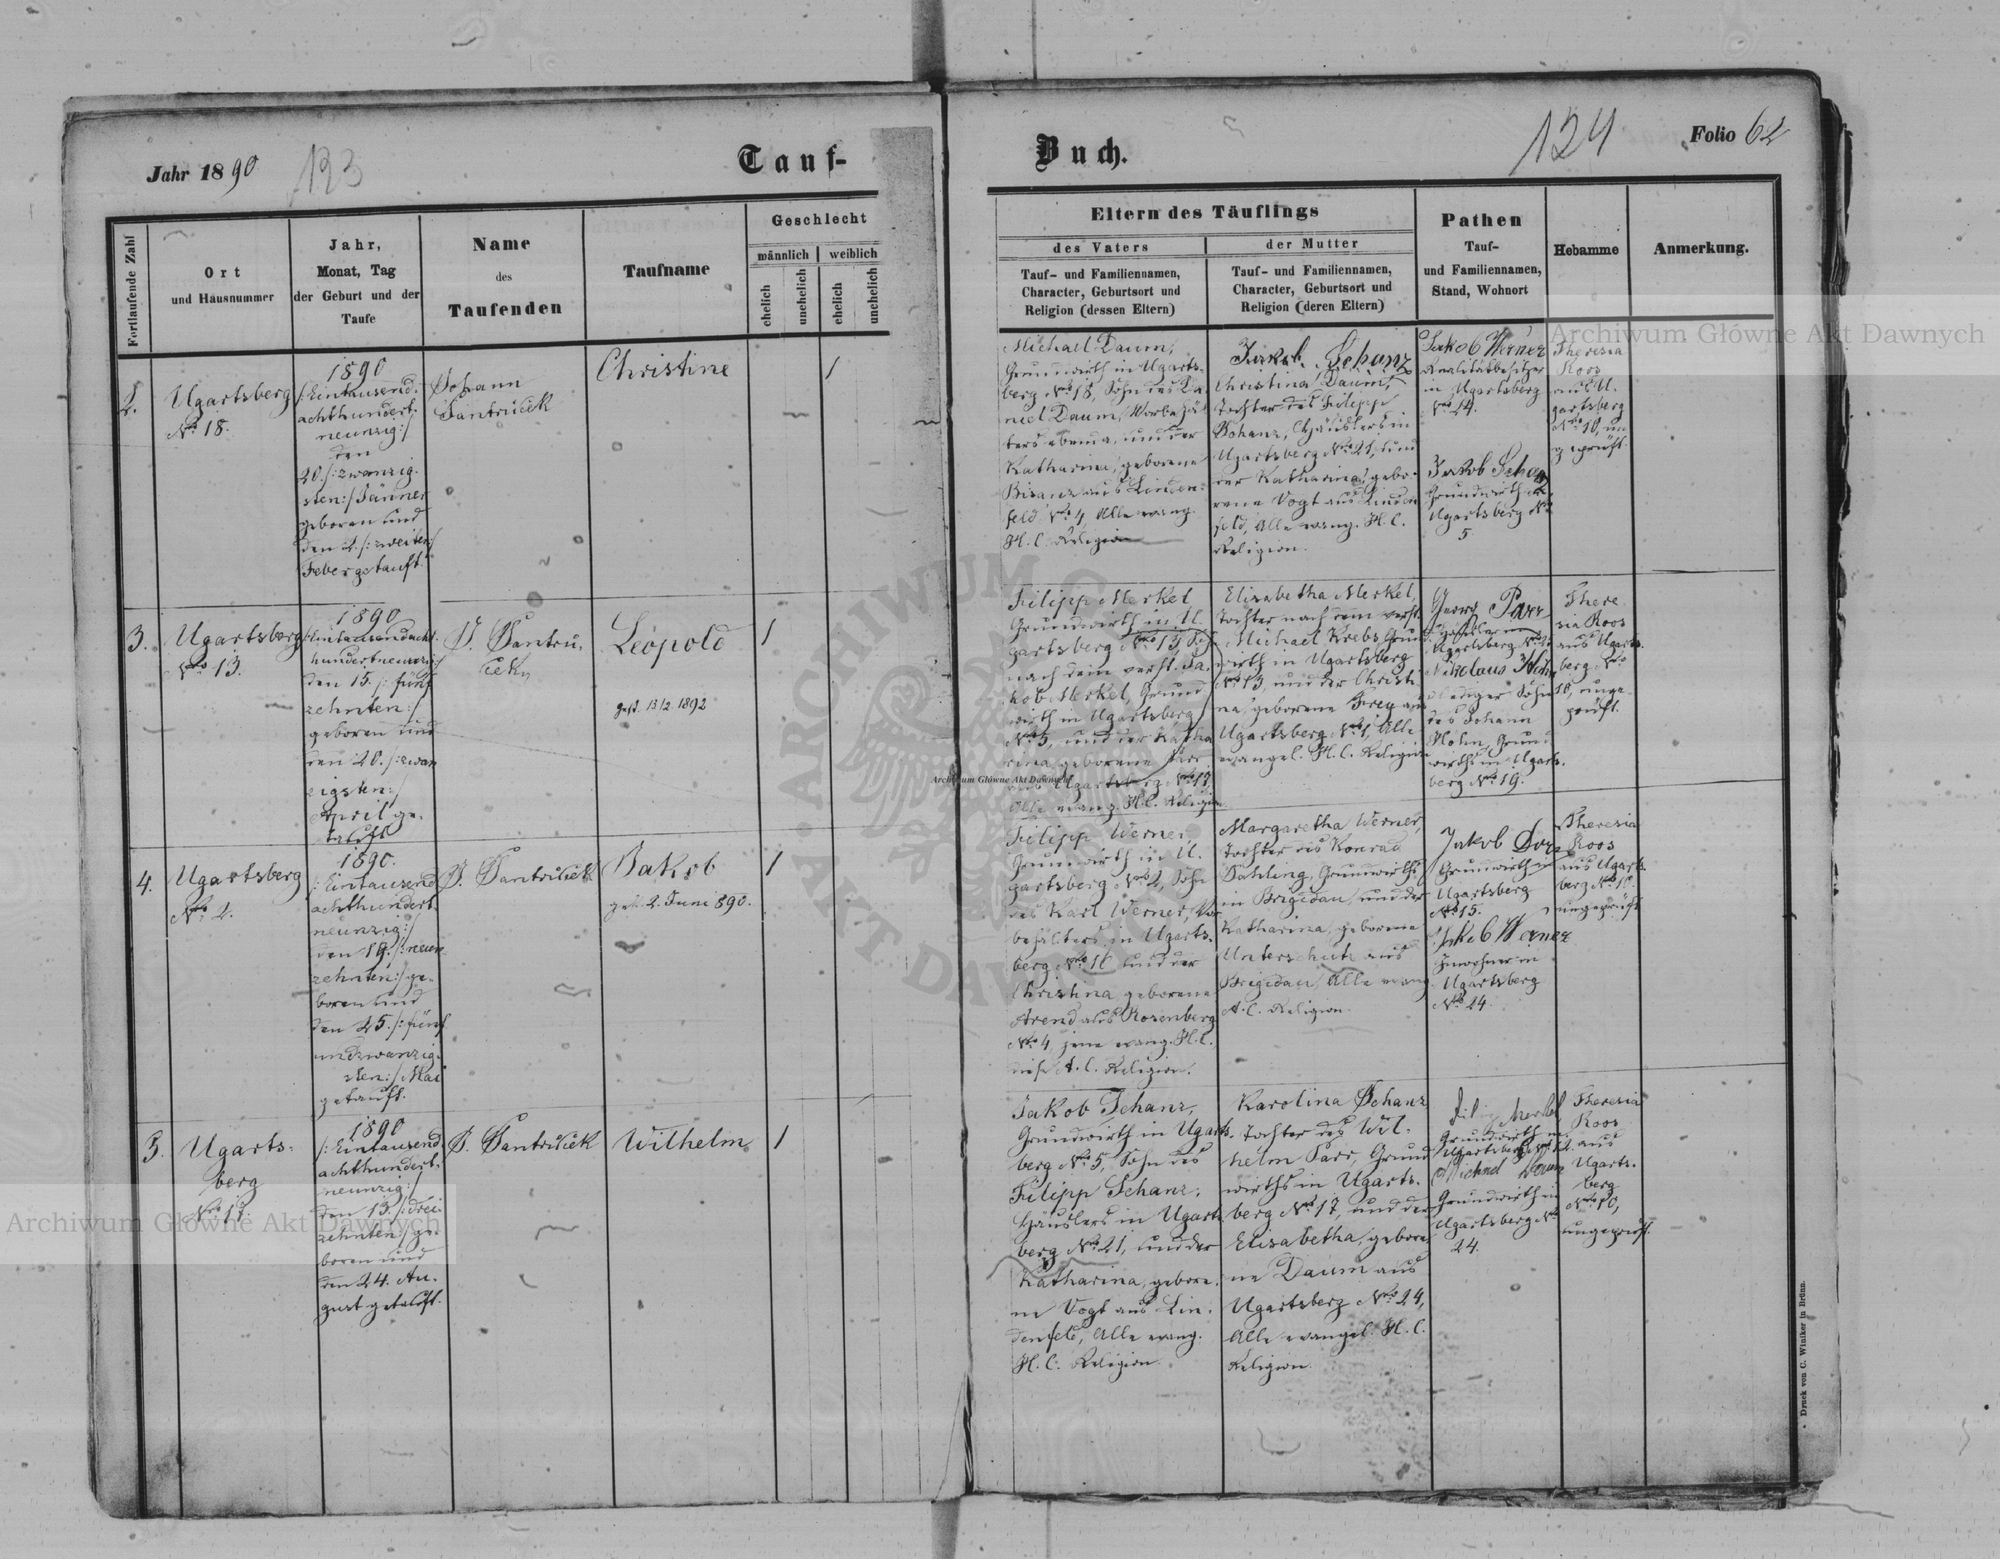 Jahr 1890
123
Tauf-
Buch.
124
Folio 62
Fortlaufende Zahl
Ort
und Hausnummer
Jahr,
Monat, Tag
der Geburt und der
Taufe
Name
des
Taufenden
Taufname
Geschlecht
männlich
weiblich
ehelich
unehelich
ehelich
unehelich
Eltern des Täuflings
des Vaters
der Mutter
Tauf- und Familiennamen,
Character, Geburtsort und
Religion (dessen Eltern)
Tauf- und Familiennamen,
Character, Geburtsort und
Religion (deren Eltern)
Pathen
Tauf-
und Familiennamen,
Stand, Wohnort
Hebamme
Anmerkung.
2.
Ugartsberg
No 18.
1890
/:Eintausend-
achthundert-
neunzig:/
den
20./:zwanzig-
sten:/Jänner
geboren und
den 2./:zweiten:/
Feber getauft.
Johann
Santruček
Christine
1
Michael Daum,
Grundwirth in Ugarts-
berg No 18, Sohn des Da-
niel Daum,
ters ebenda, und der
Katharina, geborene
Bisanz aus Linden-
feld No 4, Alle evang.
H. C. Religion
Jakob Schanz
Christina Daum,
Tochter des Filipp
Schanz, Häuslers in
Ugartsberg No 21, und
der Katharina, gebo-
rene Vogt aus Linden-
feld, Alle evang. H. C.
Religion.
Jakob Werner
Realitätbesitzer
in Ugartsberg
No 24.
Jakob Schanz
Grundwirth in
Ugartsberg No
5
Theresia
Roos
aus U-
gartsberg
No 10, un-
geprüft.
3.
Ugartsberg
No 13.
1890
/:Eintausendacht-
hundertneunzig:/
den 15./:fünf
zehnten:/
geboren und
den 20./:zwan
zigsten:/
April ge-
tauft
J. Santru-
ček
Leopold
gest. 13/2. 1892
1
Filipp Merkel
Grundwirth in U-
gartsberg No 13, Sohn
nach dem verst. Ja-
kob Merkel, Grund-
wirth in Ugartsberg
No 5, und der Katha-
rina, geborene Parr
aus Ugartsberg No 17,
Alle evang. H. C. Religion
Elisabetha Merkel,
Tochter nach dem verst.
Michael Krebs, Grund-
wirth in Ugartsberg
No 13, und der Christi-
na, geborene Frey aus
Ugartsberg No 1, Alle
evangel. H. C. Religion
Georg Parr
Ugartsberg No
Nikolaus Hohn
lediger Sohn
des Johann
Hohn, Grund-
wirths in Ugarts-
berg No 19.
There-
sia Roos
aus Ugarts-
berg No
10, unge-
prüft.
4.
Ugartsberg
No 2.
1890.
/:Eintausend
achthundert-
neunzig:/
den 19./:neun
zehnten:/ ge-
boren und
den 25./:fünf
undzwanzig-
sten:/ Mai
getauft.
J. Santruček
Jakob
gest. 2. Juni 890.
1
Filipp Werner,
Grundwirth in U-
gartsberg No 2, Sohn
des Karl Werner, Vor-
behälters in Ugarts-
berg No 16 und der
Christina, geborene
Arend aus Rosenberg
No 4, jene evang. H. C.
diese A. C. Religion.
Margaretha Werner,
Tochter des Konrad
Dahling, Grundwirths
in Brigidau, und der
Katharina, geborene
Unterschutz aus
Brigidau, Alle evang.
A. C. Religion.
Jakob
Grundwirth in
Ugartsberg
No 15.
Jakob Werner
Inwohner in
Ugartsberg
No 24.
Theresia
Roos
aus Ugarts-
berg No 10.
ungeprüft
5.
Ugarts-
berg
No 17.
1890
/:Eintausend
achthundert-
neunzig:/
den 13./:drei-
zehnten:/ ge-
boren und
den 24. Au-
gust getauft.
J. Santruček
Wilhelm
1
Jakob Schanz,
Grundwirth in Ugarts-
berg No 5, Sohn des
Filipp Schanz,
Häuslers in Ugarts-
berg No 21, und der
Katharina, gebore-
ne Vogt aus Lin-
denfeld, Alle evang.
H. C. Religion.
Karolina Schanz
Tochter des Wil-
helm Parr, Grund-
wirths in Ugarts-
berg No 17, und der
Elisabetha, gebore-
ne Daum aus
Ugartsberg No 24,
Alle evangel. H. C.
Religion.
Merkel
Grundwirth in
Ugartsberg
Michael Daum
Grundwirth in
Ugartsberg No
24.
Theresia
Roos
aus
Ugarts-
berg
No 10,
ungeprüft.
Druck von C. Winiker in Brünn.
Archiwum Główne Akt Dawnych
Archiwum Główne Akt Dawnych
Archiwum Główne Akt Dawnych